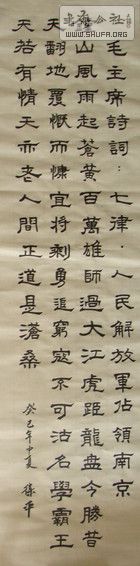 WWW.SHUFA.ORG
毛主席詩詞：七律·人民解放軍佔領南京
山風雨起蒼黃百萬雄師過大江虎踞龍盤今勝昔
天翻地覆慨而慷宜將剩勇追窮寇不可沽名學霸王
天若有情天亦老人間正道是滄桑
癸巳年中夏